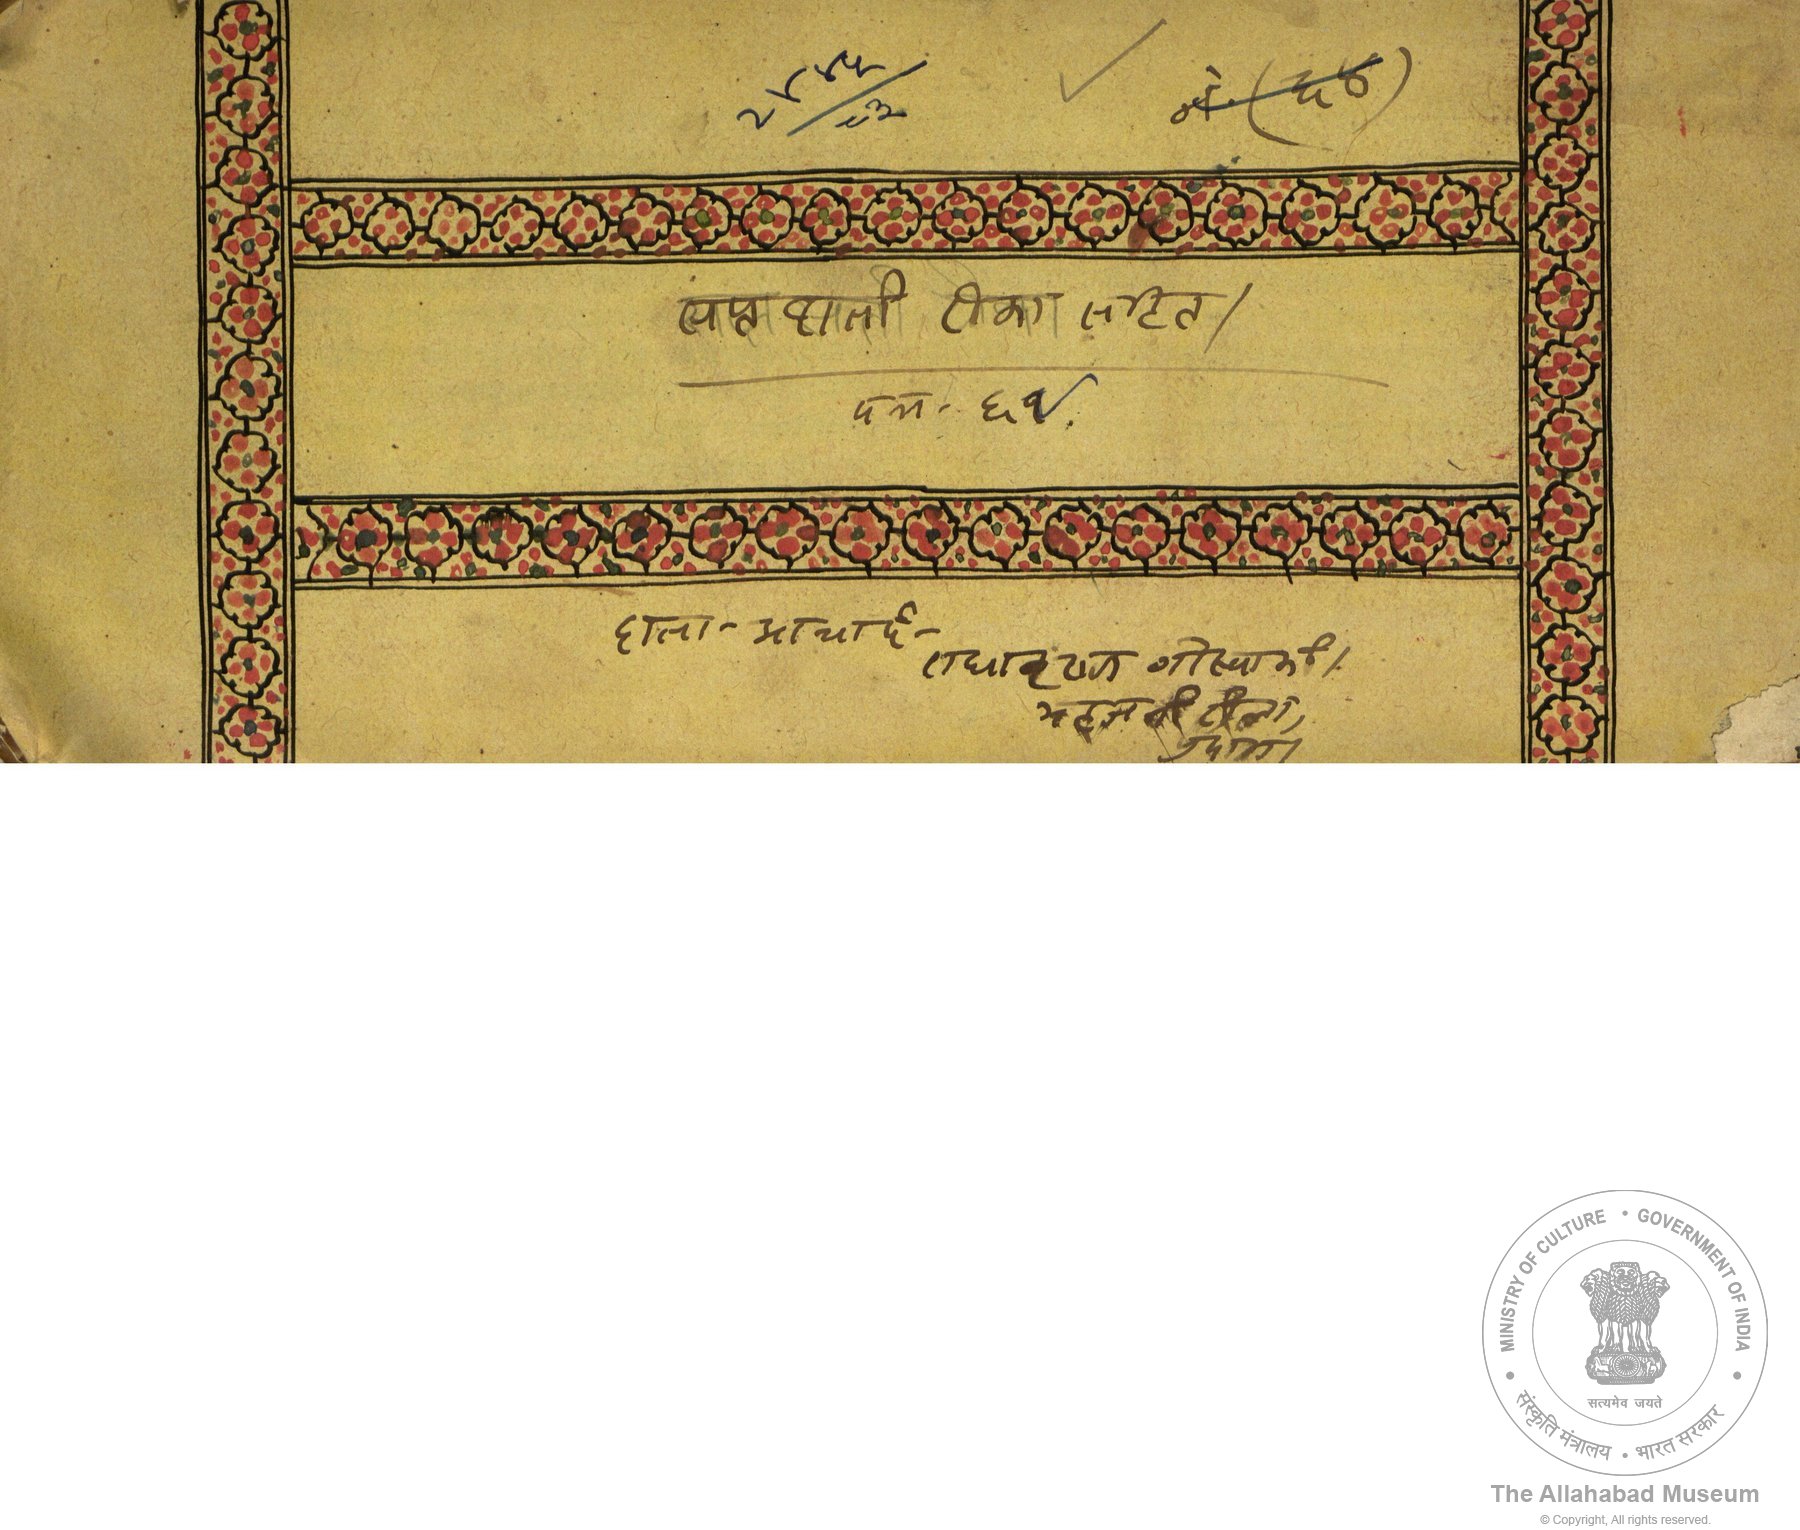 नं. (६७)
सप्तशती टीका सहित।
पत्र- ६१.
दाता- आचार्य-
राधाकृष्ण गोस्वामी।
महाजनी टोला,
प्रयाग।
MINISTRY OF CULTURE • GOVERNMENT OF INDIA
सत्यमेव जयते
संस्कृति मंत्रालय • भारत सरकार
The Allahabad Museum
© Copyright, All rights reserved.